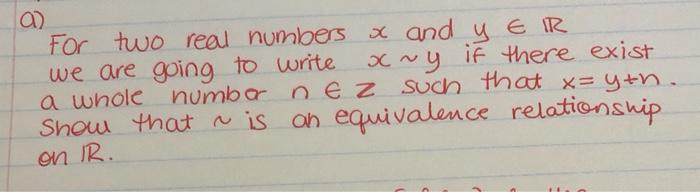 a)
For two real numbers x and y ∈ ℝ
we are going to write x ~ y if there exist
a whole number n ∈ z such that x = y+n.
Show that ~ is an equivalence relationship
on ℝ.